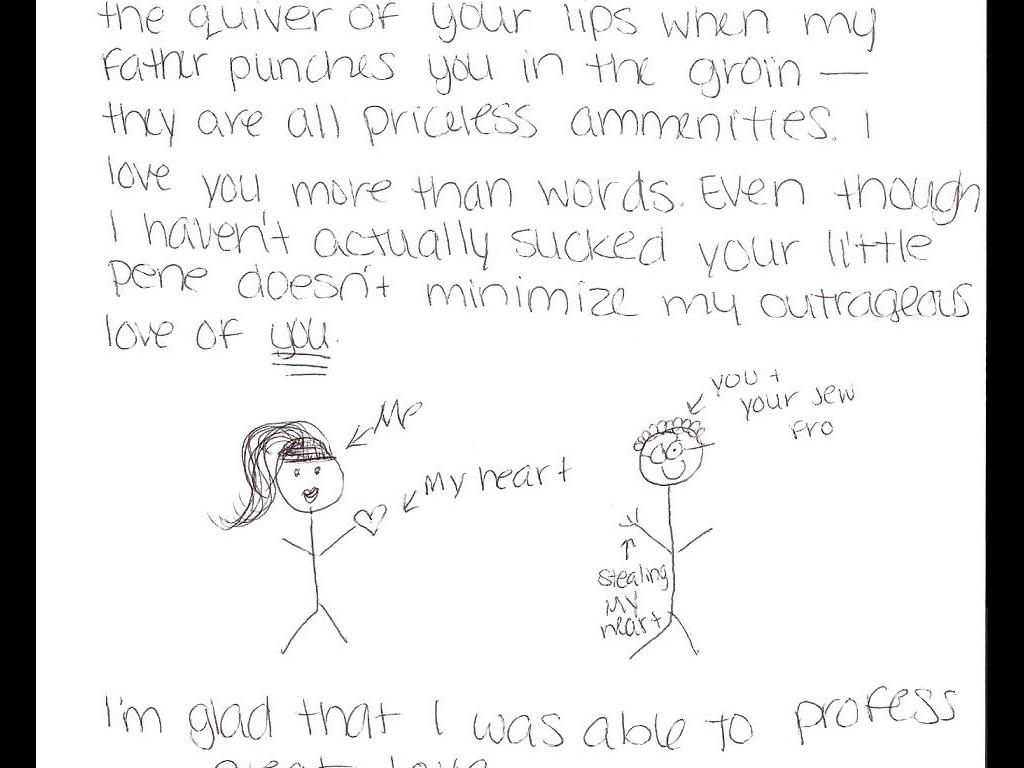 the quiver of your lips when my
Father punches you in the groin —
they are all priceless ammenities. I
love you more than words. Even though
I haven't actually sucked your little
pene doesn't minimize my outrageous
love of you.
Me
My heart
you +
your Jew
Fro
stealing
My
heart
I'm glad that I was able to profess
great love